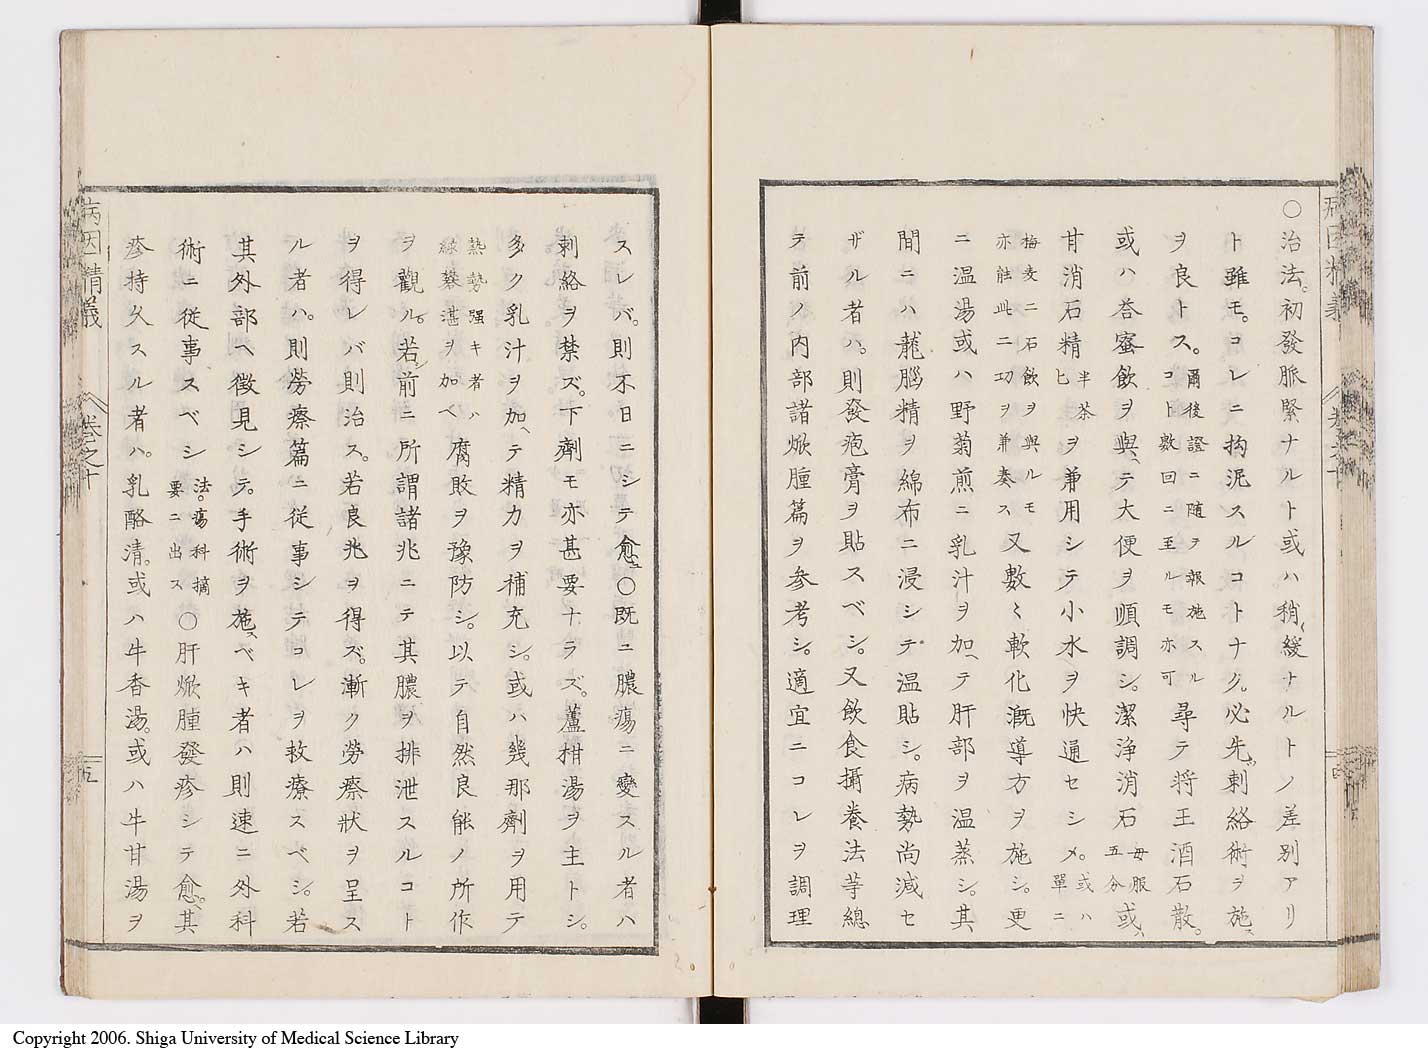 ○治法。初發脈緊ナルト或ハ稍〻緩ナルトノ差別アリ
ト雖モ。コレニ拘泥スルコトナク。必先ヅ刺絡術ヲ施ス
ヲ良トス。爾後證ニ隨ヲ報施スルコト數回ニ至ルモ亦可 尋テ将王酒石散。
或ハ荅蜜飲ヲ與ヘテ大便ヲ順調シ。潔浄消石毎服五分或ハ
甘消石精半茶匕ヲ兼用シテ小水ヲ快通セシメ。或ハ單ニ
梅麦二石飲ヲ與ルモ亦能此二功ヲ兼奏ス 又數〻軟化漑導方ヲ施シ。更
ニ温湯或ハ野菊煎ニ乳汁ヲ加ヘテ肝部ヲ温蒸シ。其
間ニハ龍腦精ヲ綿布ニ浸シテ温貼シ。病勢尚減セ
ザル者ハ。則發疱膏ヲ貼スベシ。又飲食攝養法䓁總
テ前ノ内部諸焮腫篇ヲ参考シ。適宜ニコレヲ調理
スレバ。則不日ニシテ愈ユ○既ニ膿瘍ニ變スル者ハ
刺絡ヲ禁ズ。下劑モ亦甚要ナラズ。蘆柑湯ヲ主トシ。
多ク乳汁ヲ加ヘテ精力ヲ補充シ。或ハ幾那劑ヲ用テ
熱勢强キ者ハ綠礬湛ヲ加ベ 腐敗ヲ豫防シ。以テ自然良能ノ所作
ヲ觀ル。若シ前ニ所謂諸兆ニテ其膿ヲ排泄スルコト
ヲ得レバ則治ス。若良兆ヲ得ズ。漸ク勞瘵狀ヲ呈ス
ル者ハ。則勞瘵篇ニ従事シテコレヲ救療スベシ。若
其外部ヘ徴見シテ。手術ヲ施スベキ者ハ則速ニ外科
術ニ従事スベシ 法。瘍科摘要ニ出ス ○肝焮腫發疹シテ愈ヘ。其
疹持久スル者ハ。乳酪清。或ハ牛香湯。或ハ牛甘湯ヲ
病因精義
卷之十
五